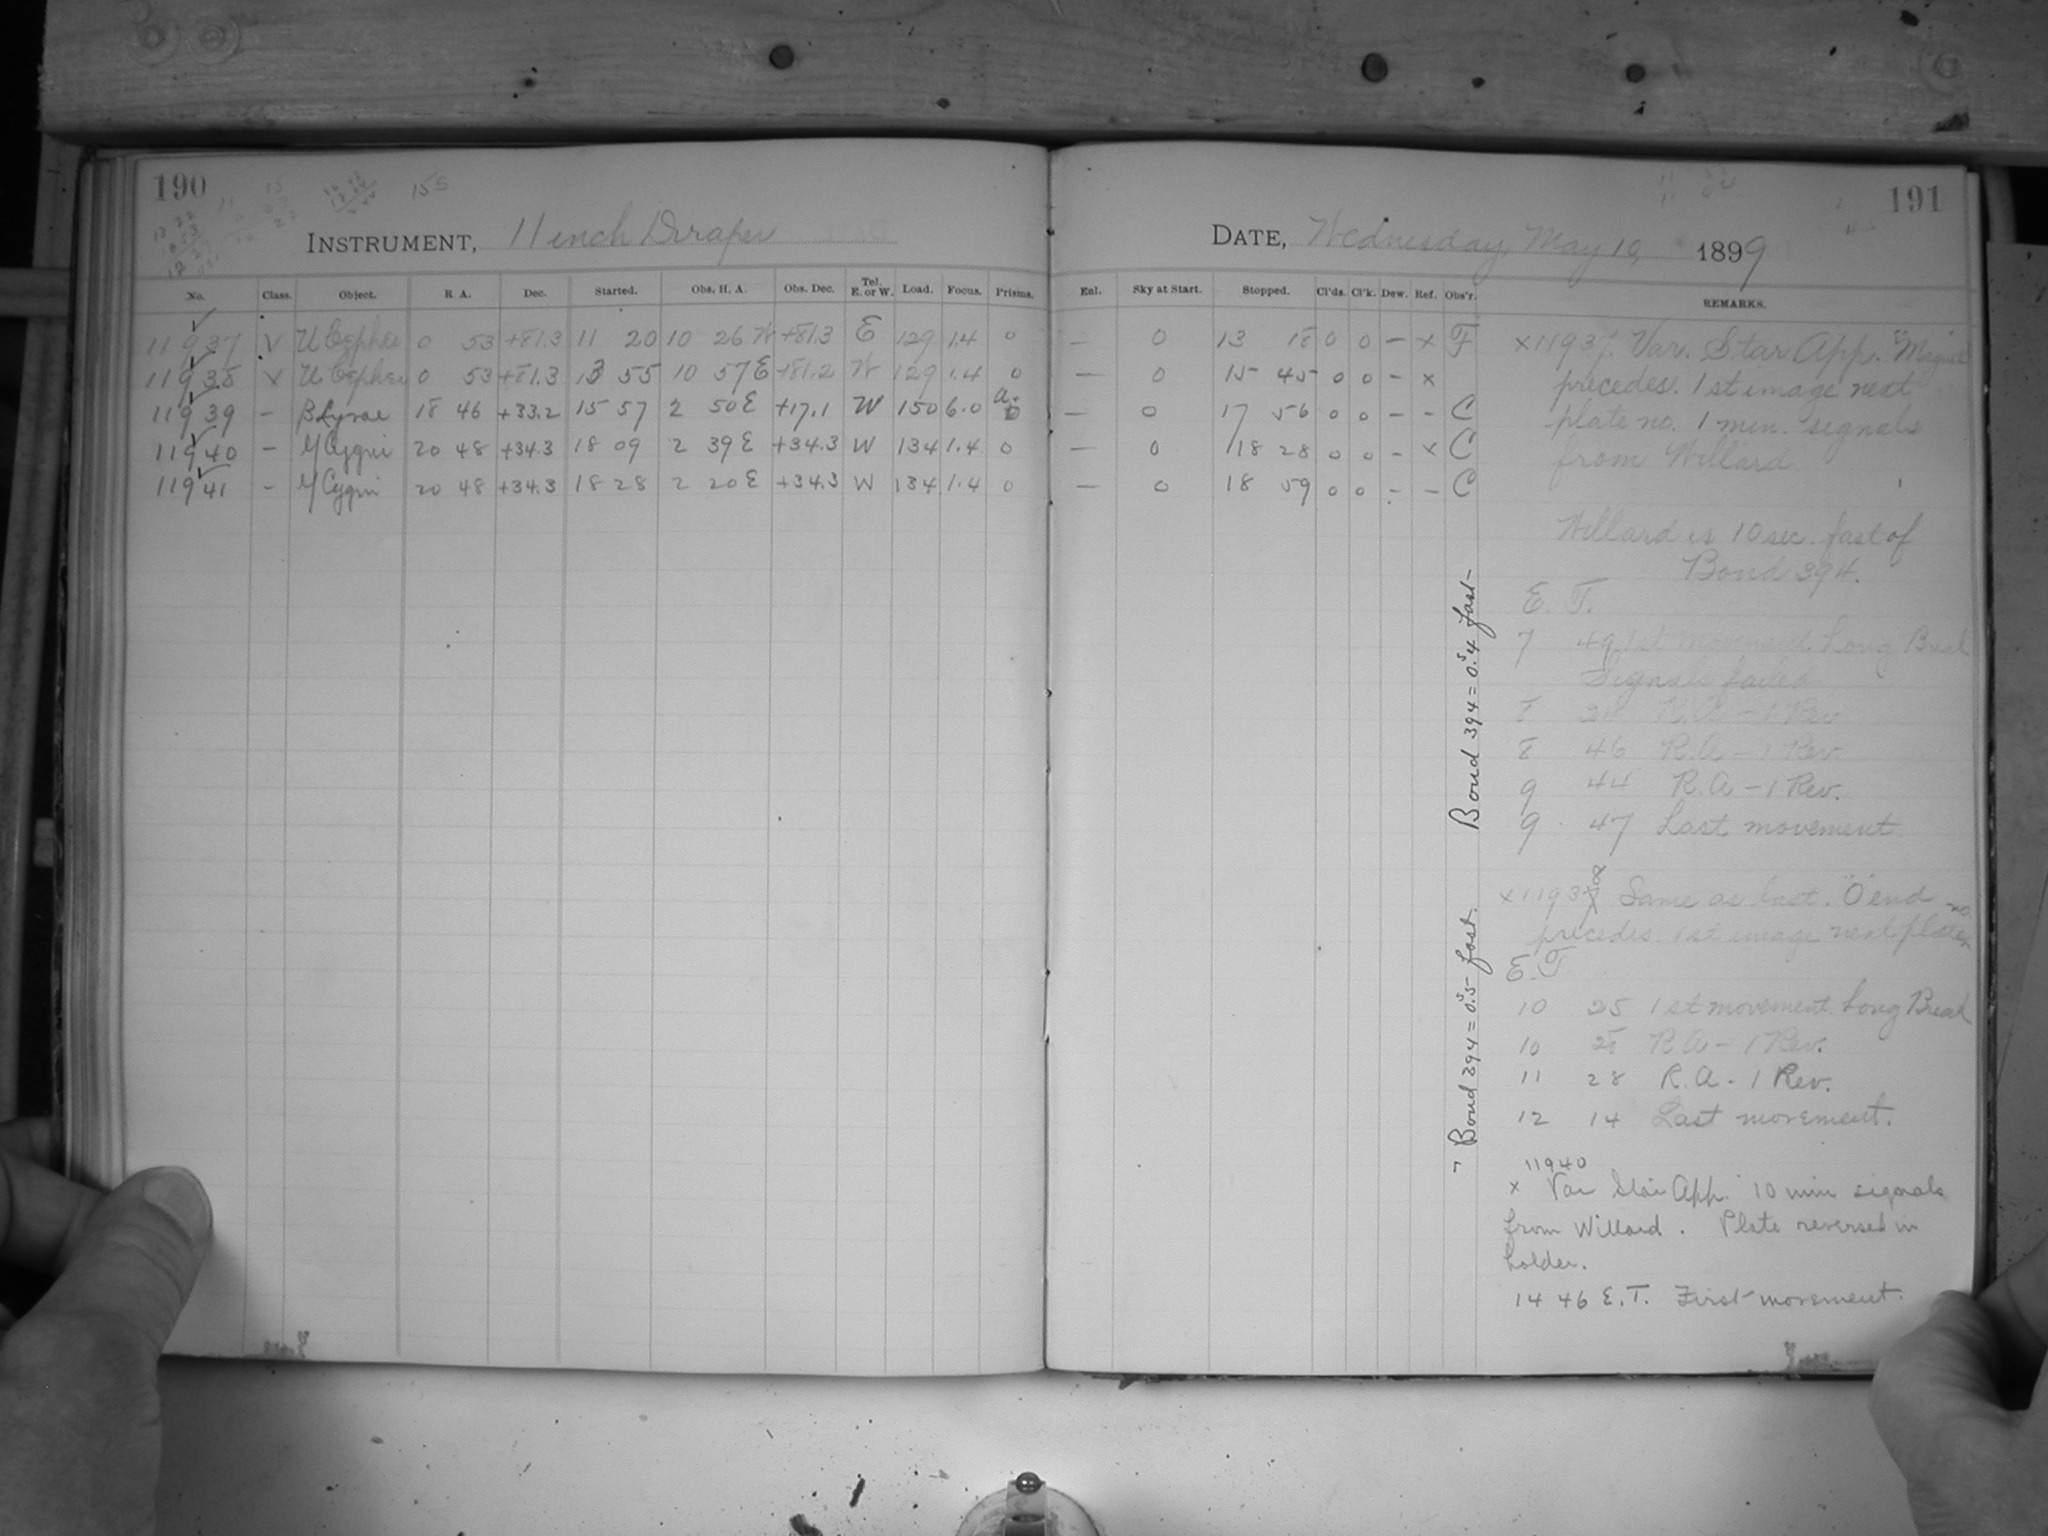 190
155
INSTRUMENT, 11 inch Draper
No. Class. Object. R. A. Dec. Started. Obs. H. A. Obs. Dec. Tel. E. or W. Load. Focus. Prisms.
11937 V U Cephei 0 53 +81.3 11 20 10 26 W +81.3 E 129 1.4 0
11938 X U Cephei 0 53 +81.3 13 55 10 57 E +81.2 W 129 1.4 0
11939 - β Lyrae 18 46 +33.2 15 57 2 50 E +17.1 W 150 6.0
11940 - Y Cygni 20 48 +34.3 18 09 2 39 E +34.3 W 134 1.4 0
11941 - Y Cygni 20 48 +34.3 18 28 2 20 E +34.3 W 134 1.4 0
191
DATE, Wednesday, May 10, 1899
Enl. Sky at Start. Stopped. Cl'ds. Cl'k. Dew. Ref. Obs'r. REMARKS.
— 0 13 18 0 0 - x F
— 0 15 45 0 0 - x
— 0 17 56 0 0 - - C
— 0 18 28 0 0 - x C
— 0 18 59 0 0 - - C
x11937. Var. Star App.
precedes. 1st image next
plate no. 1 min. signals
from Willard
Willard is 10 sec. fast of
Bond 394.
E. T.
7 49 1st movement. Long Break
Signals failed
8 R.A - 1 Rev
8 46 R.A - 1 Rev.
9 44 R.A - 1 Rev.
9 47 Last movement.
x11938 Same as last. "O" end
precedes 1st image next plate no.
E. T
10 25 1st movement. Long Break
10 28 R.A - 1 Rev.
11 28 R.A - 1 Rev.
12 14 Last movement.
11940
x Var Star App. 10 min signals
from Willard. Plate reversed in
holder.
14 46 E.T. First movement.
Bond 394 = 0.ˢ5 fast. Bond 394 = 0.ˢ4 fast-